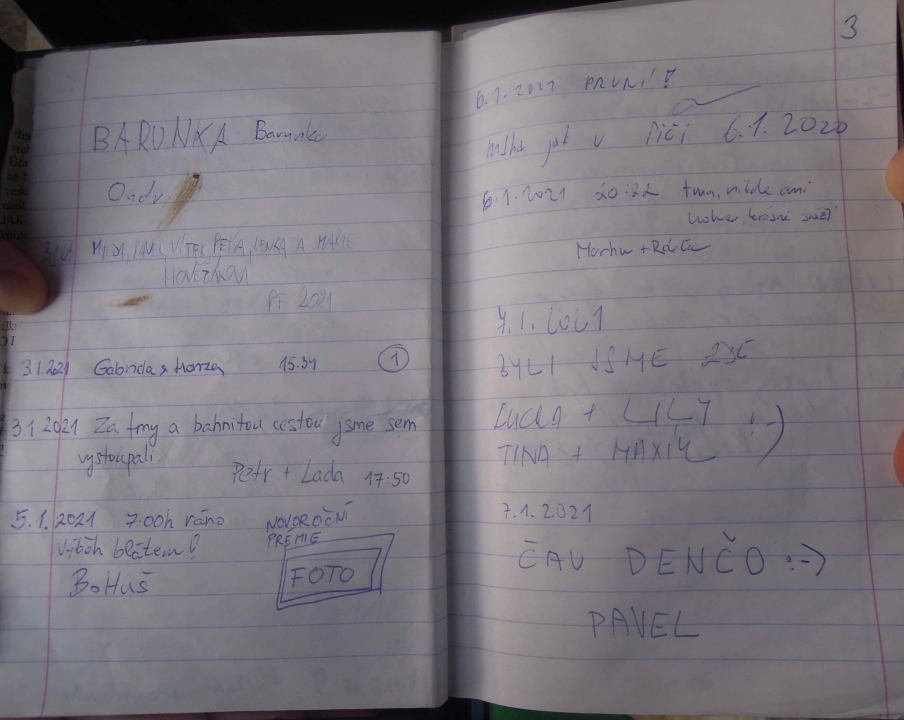 BARUNKA Barunka
Ondr
3.1.21 MILDA, PAVEL, VÍTEK, PEŤA, LENKA A MARIE
PF 2021
3.1.2021 Gabriela & Honza 15.34 1
3.1 2021 Za tmy a bahnitou cestou jsme sem
vystoupali.
Petr + Lada 17:50
5.1.2021 7:00h ráno
výběh blátem!
BoHuš
NOVOROČNÍ
PRÉMIE
FOTO
3
6.1.2021 PRVNÍ!
mlha jak v piči 6.1.2020
6.1.2021 20:22 tma, nikde ani
krásně sněží
7.1.2021
BYLI JSME ZDE
LUCKA + LILY
TINA + MAXÍK :-)
7.1.2021
ČAU DENČO :->
PAVEL